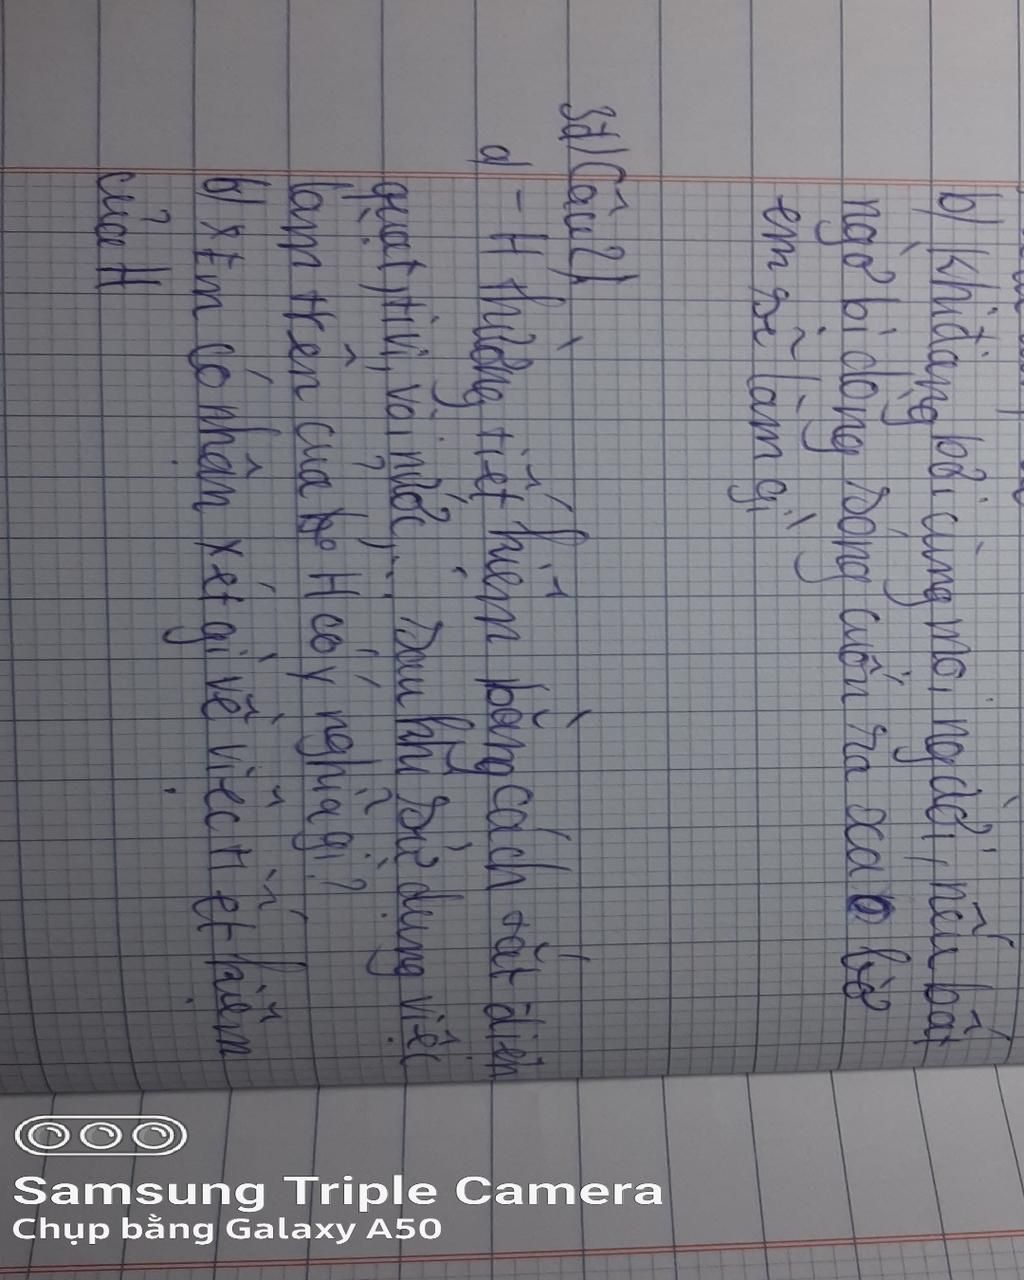 b) Khi đang bơi cùng mọi người, nếu bất
ngờ bị dòng sóng cuốn ra xa bờ
em sẽ làm gì
3đ) Câu 2)
a) - H thường tiết kiệm bằng cách tắt điện
quạt, tivi, vòi nước,... sau khi sử dụng việc
làm trên của H có ý nghĩa gì?
b) Em có nhận xét gì về việc tiết kiệm
của H
Samsung Triple Camera
Chụp bằng Galaxy A50